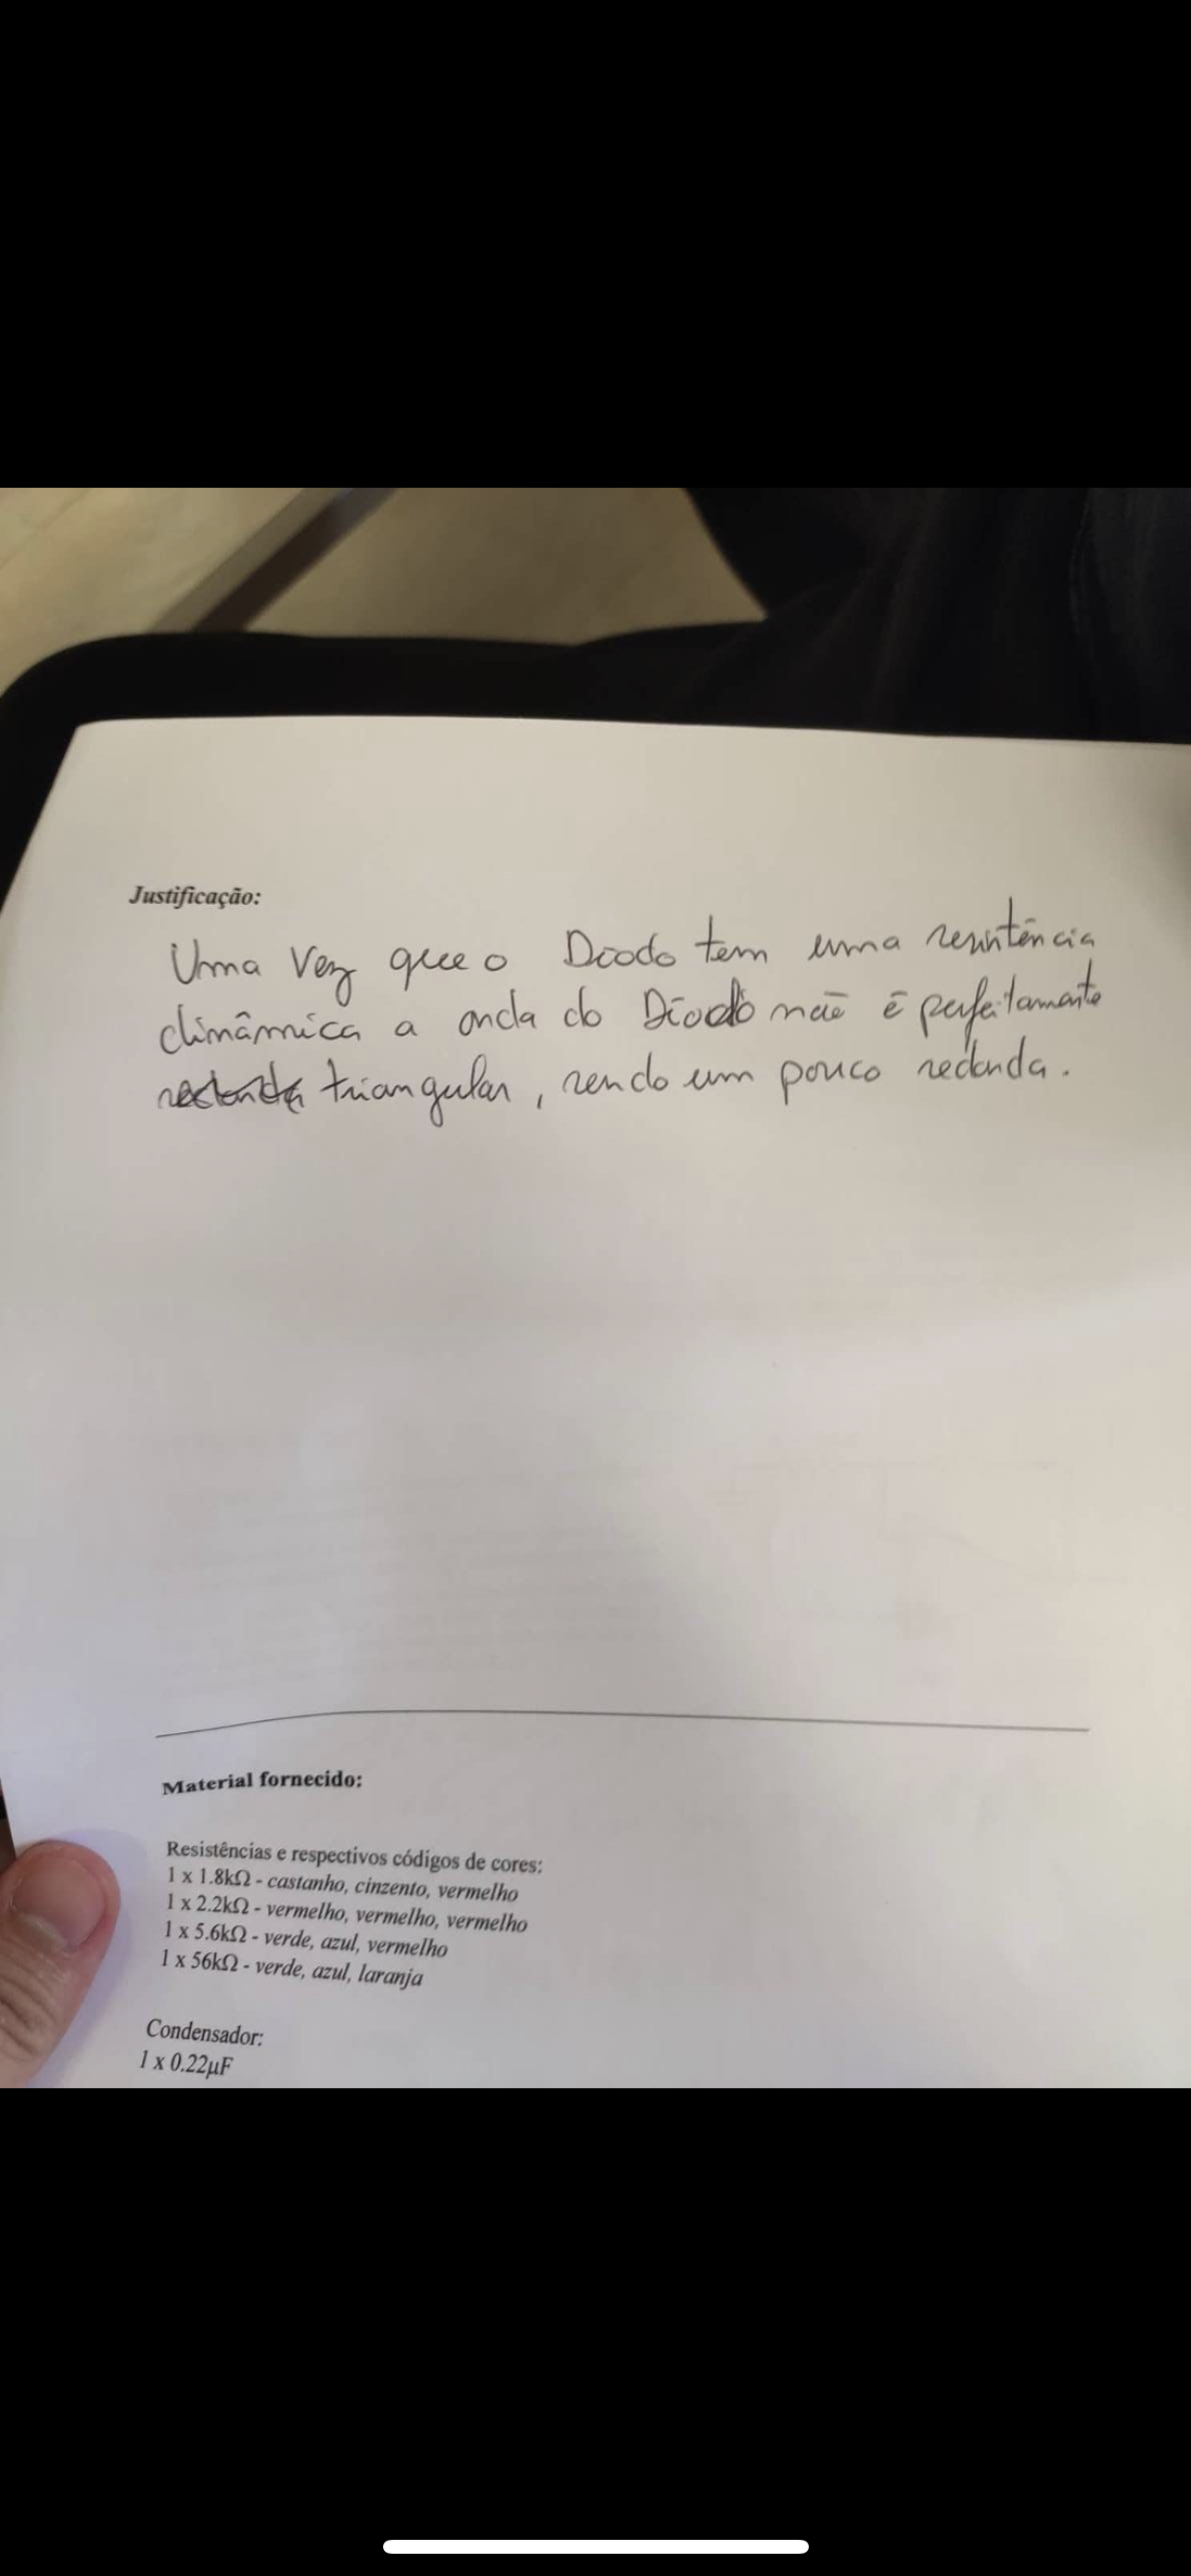 Justificação:
Uma vez que o Díodo tem uma resistência
dinâmica a onda do Díodo não é perfeitamente
redonda triangular, sendo um pouco redonda.
Material fornecido:
Resistências e respectivos códigos de cores:
1 x 1.8kΩ - castanho, cinzento, vermelho
1 x 2.2kΩ - vermelho, vermelho, vermelho
1 x 5.6kΩ - verde, azul, vermelho
1 x 56kΩ - verde, azul, laranja
Condensador:
1 x 0.22μF